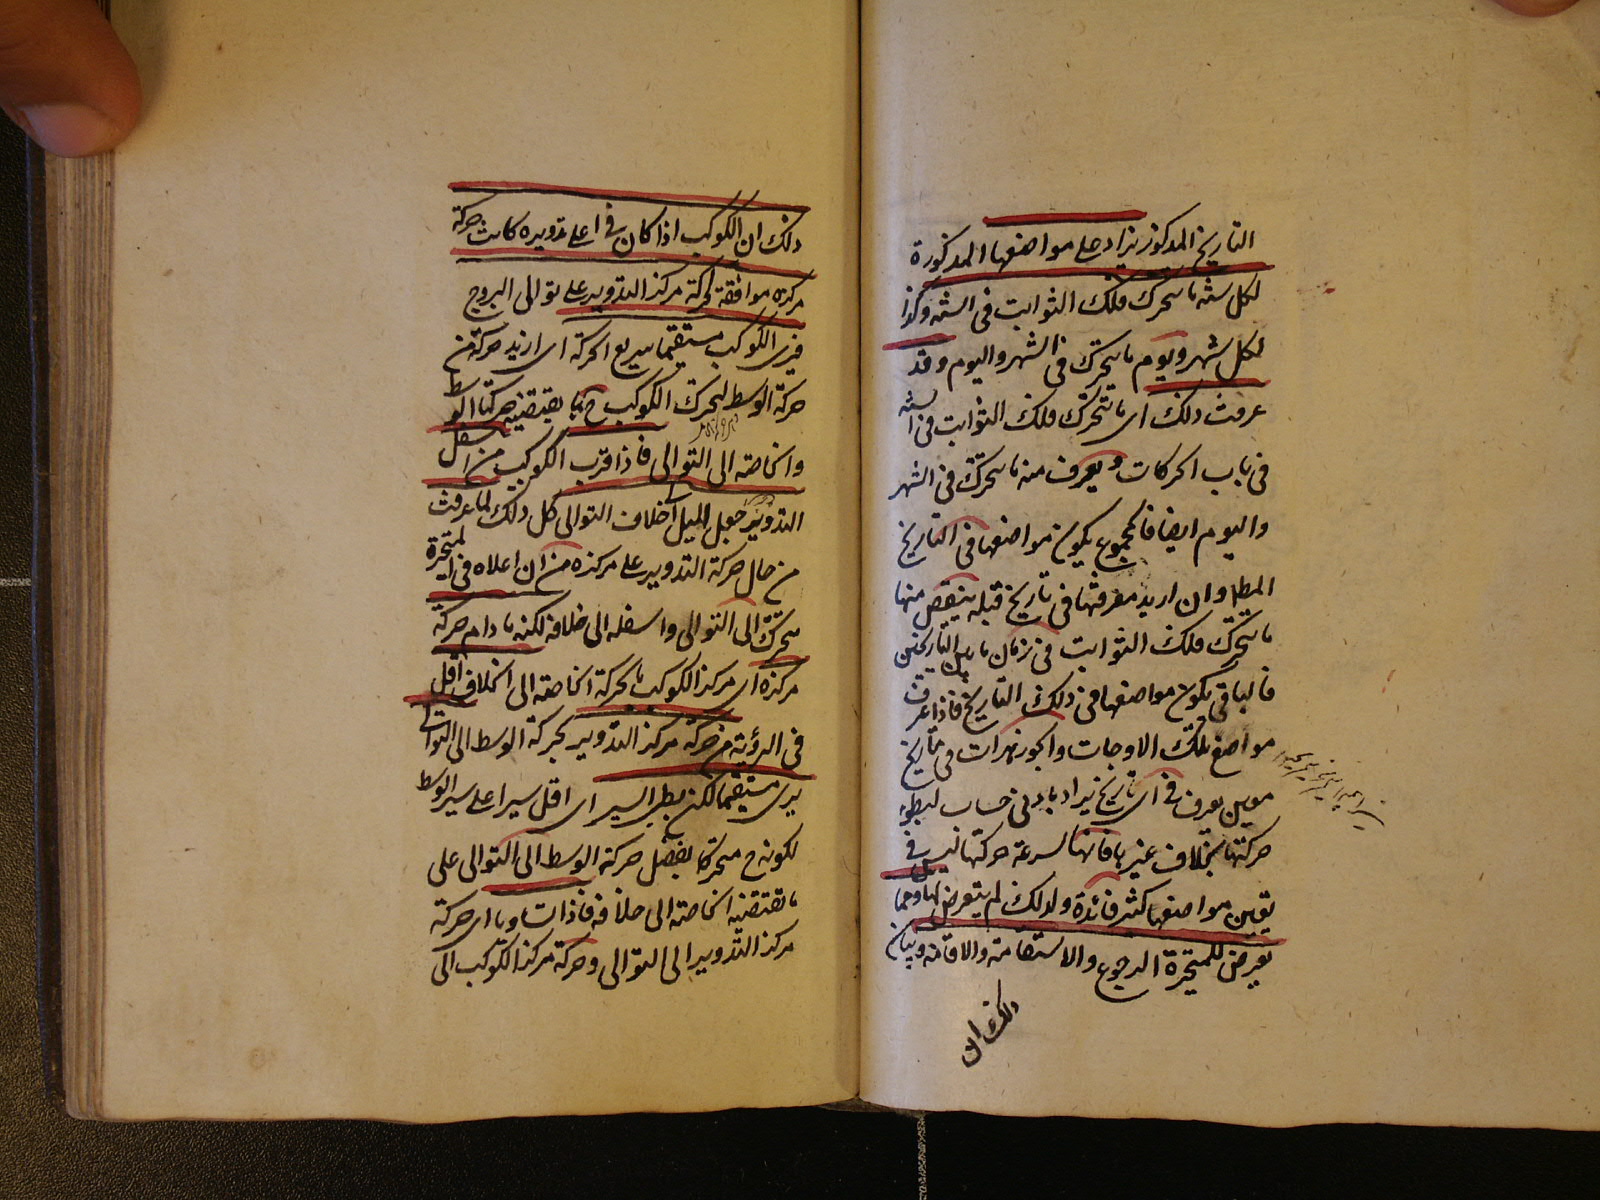 التاريخ المذكور يزاد على مواضعها المذكورة
لكل سنة ما يتحرك فلك الثوابت في السنة وكذا
لكل شهر ويوم ما يتحرك في الشهر واليوم وقد
عرفت ذلك اى ما يتحرك فلك الثوابت في السنة
في باب الحركات ويعرف منه ما يتحرك في الشهر
واليوم ايضا فالمجموع يكون مواضعها في التاريخ
المط وان اريد معرفتها في تاريخ قبله ينقص منها
ما يتحرك فلك الثوابت في زمان ما بين التاريخين
فالباقي يكون مواضعها في ذلك التاريخ فاذا عرف
مواضع تلك الاوجات والجوزهرات في تاريخ
معين يعرف في اى تاريخ يراد بادنى حساب لبطوء
حركتها بخلاف غيرها فانها لسرعة حركتها ليس في
تعيين مواضعها كثير فائدة ولذلك لم يتعرض لها ومما
يعرض للمتحيرة الرجوع والاستقامة والاقامة وبيان
ذلك ان
ذلك ان الكوكب اذا كان في اعلى تدويره كانت حركة
مركزه موافقة لحركة مركز التدوير على توالى البروج
فيرى الكوكب مستقيما سريع الحركة اى ازيد حركة من
حركة الوسط لتحرك الكوكب ح بما يقتضيه حركتا الوسط
والخاصة الى التوالى فاذا قرب الكوكب من اسفل
التدوير جعل الميل الى خلاف التوالى كل ذلك لما عرفت
من حال حركة التدوير على مركزه من ان اعلاه في المتحيرة
يتحرك الى التوالى واسفله الى خلافه لكنه ما دام حركة
مركزه اى مركز الكوكب بالحركة الخاصة الى الخلاف اقل
في الرؤية من حركة مركز التدوير بحركة الوسط الى التوالى
يرى مستقيما لكن بطئ السير اى اقل سيرا على سير الوسط
لكونه ح متحركا بفضل حركة الوسط الى التوالى على
ما تقتضيه الخاصة الى خلافه فاذا تساويا اى حركة
مركز التدوير الى التوالى وحركة مركز الكوكب الى